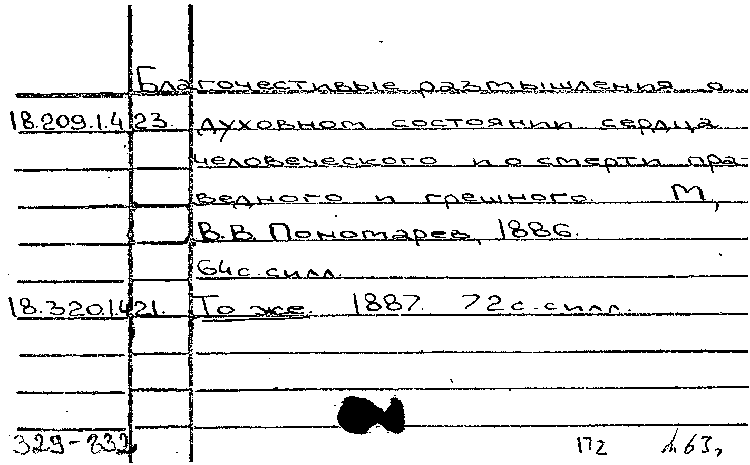 Благочестивые размышления о
18.209.1.4 23. духовном состоянии сердца
человеческого и о смерти пра-
ведного и грешного. М,
В.В. Пономарев, 1886.
64 с. силл.
18.320.1.4 21. То же. 1887. 72 с. силл.
329-832 П2 63,